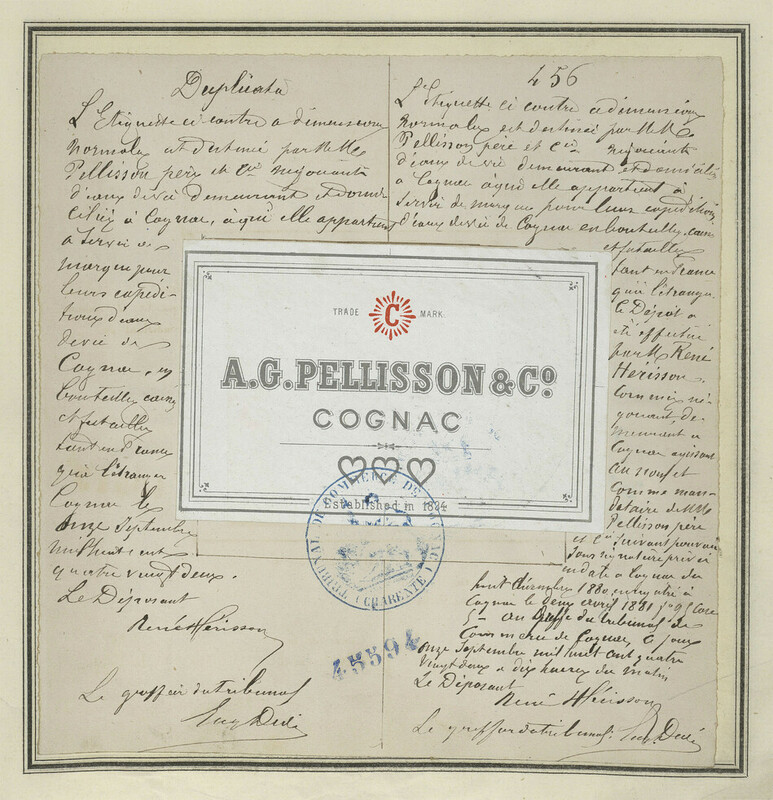 Duplicata
L'Etiquette ci contre a dimensions
normales est destinée par MM.
Pellisson père et Cie négociants
d'eaux de vie demeurant et domi-
ciliés à Cognac, à qui elle appartient
à servir de
marque pour
leurs expédi-
tions d'eaux
de vie de
Cognac, en
bouteilles, caisses
et futailles
tant en France
qu'à l'étranger
Cognac le
onze Septembre
mil huit cent
quatre vingt deux.
Le Déposant
René Hérisson
Le greffier du tribunal
456
L'Etiquette ci contre a dimensions
normales est destinée par MM.
Pellisson père et Cie négociants
d'eaux de vie demeurant et domiciliés
à Cognac à qui elle appartient à
servir de marque pour leurs expéditions
d'eaux de vie de Cognac en bouteilles, caisses
et futailles
tant en France
qu'à l'étranger
le Dépôt a
été effectué
par M. René
Hérisson,
Commis né-
gociant, de-
meurant à
Cognac agissant
au nom et
comme man-
dataire de MM.
Pellisson père
et Cie suivant pouvoir
sous signature privée
en date à Cognac du
huit décembre 1880, enregistré à
Cognac le deux avril 1881
au Greffe du tribunal de
Commerce de Cognac, ce jour
onze Septembre mil huit cent quatre
vingt deux à dix heures du matin
Le Déposant
René Hérisson
Le greffier du tribunal
TRADE C MARK
A.G. PELLISSON & Co.
COGNAC
Established in 1834
TRIBUNAL DE COMMERCE DE COGNAC (CHARENTE)
45594